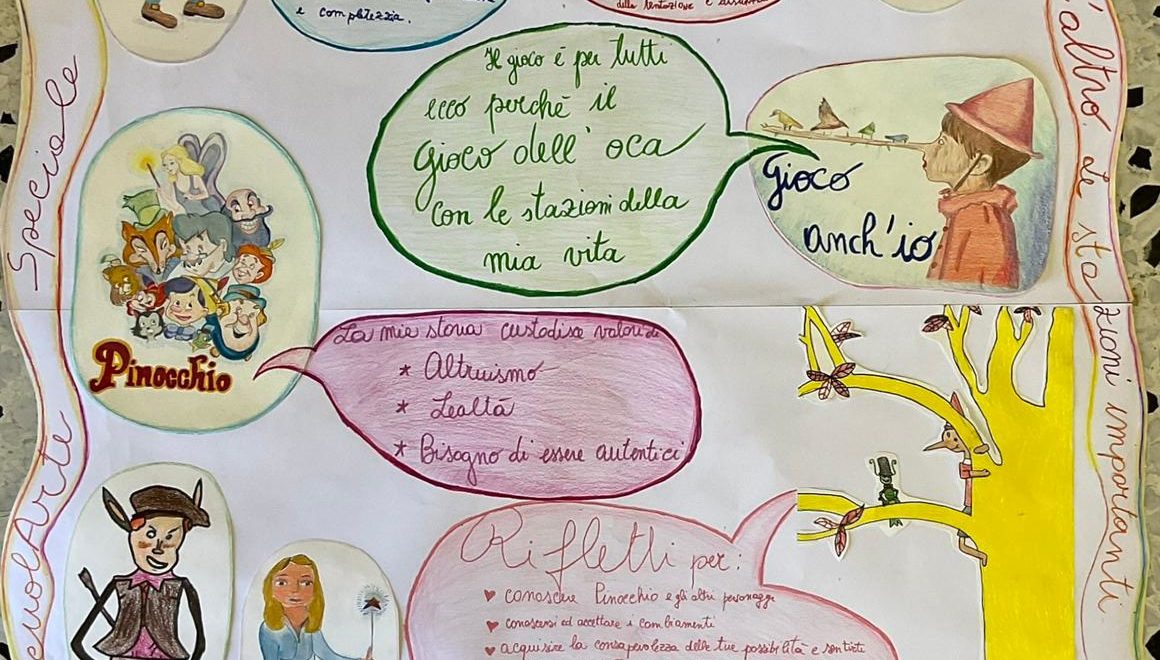 e completezza.
della tentazione e
Speciale
l'altro. Le stazioni importanti
Il gioco è per tutti
ecco perchè il
gioco dell'oca
con le stazioni della
mia vita
gioco
anch'io
Pinocchio
La mia storia custodisce valori di
* Altruismo
* Lealtà
* Bisogno di essere autentici
Rifletti per:
♥ conoscere Pinocchio e gli altri personaggi
♥ conoscersi ed accettare i cambiamenti
♥ acquisire la consapevolezza delle tue possibilità e